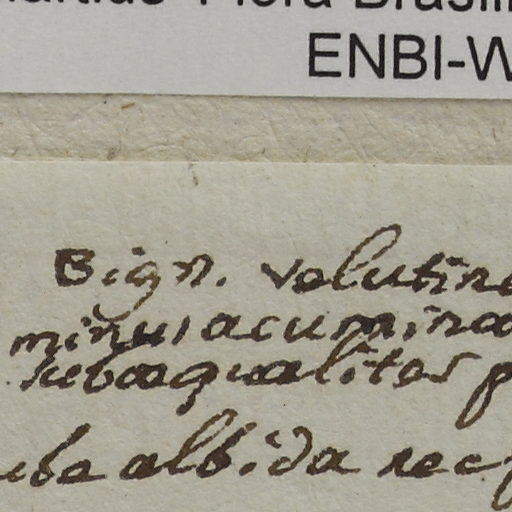 Flora Brasili
ENBI-W
Bign. velutina
minus acumina
subaequaliter p
albida rec